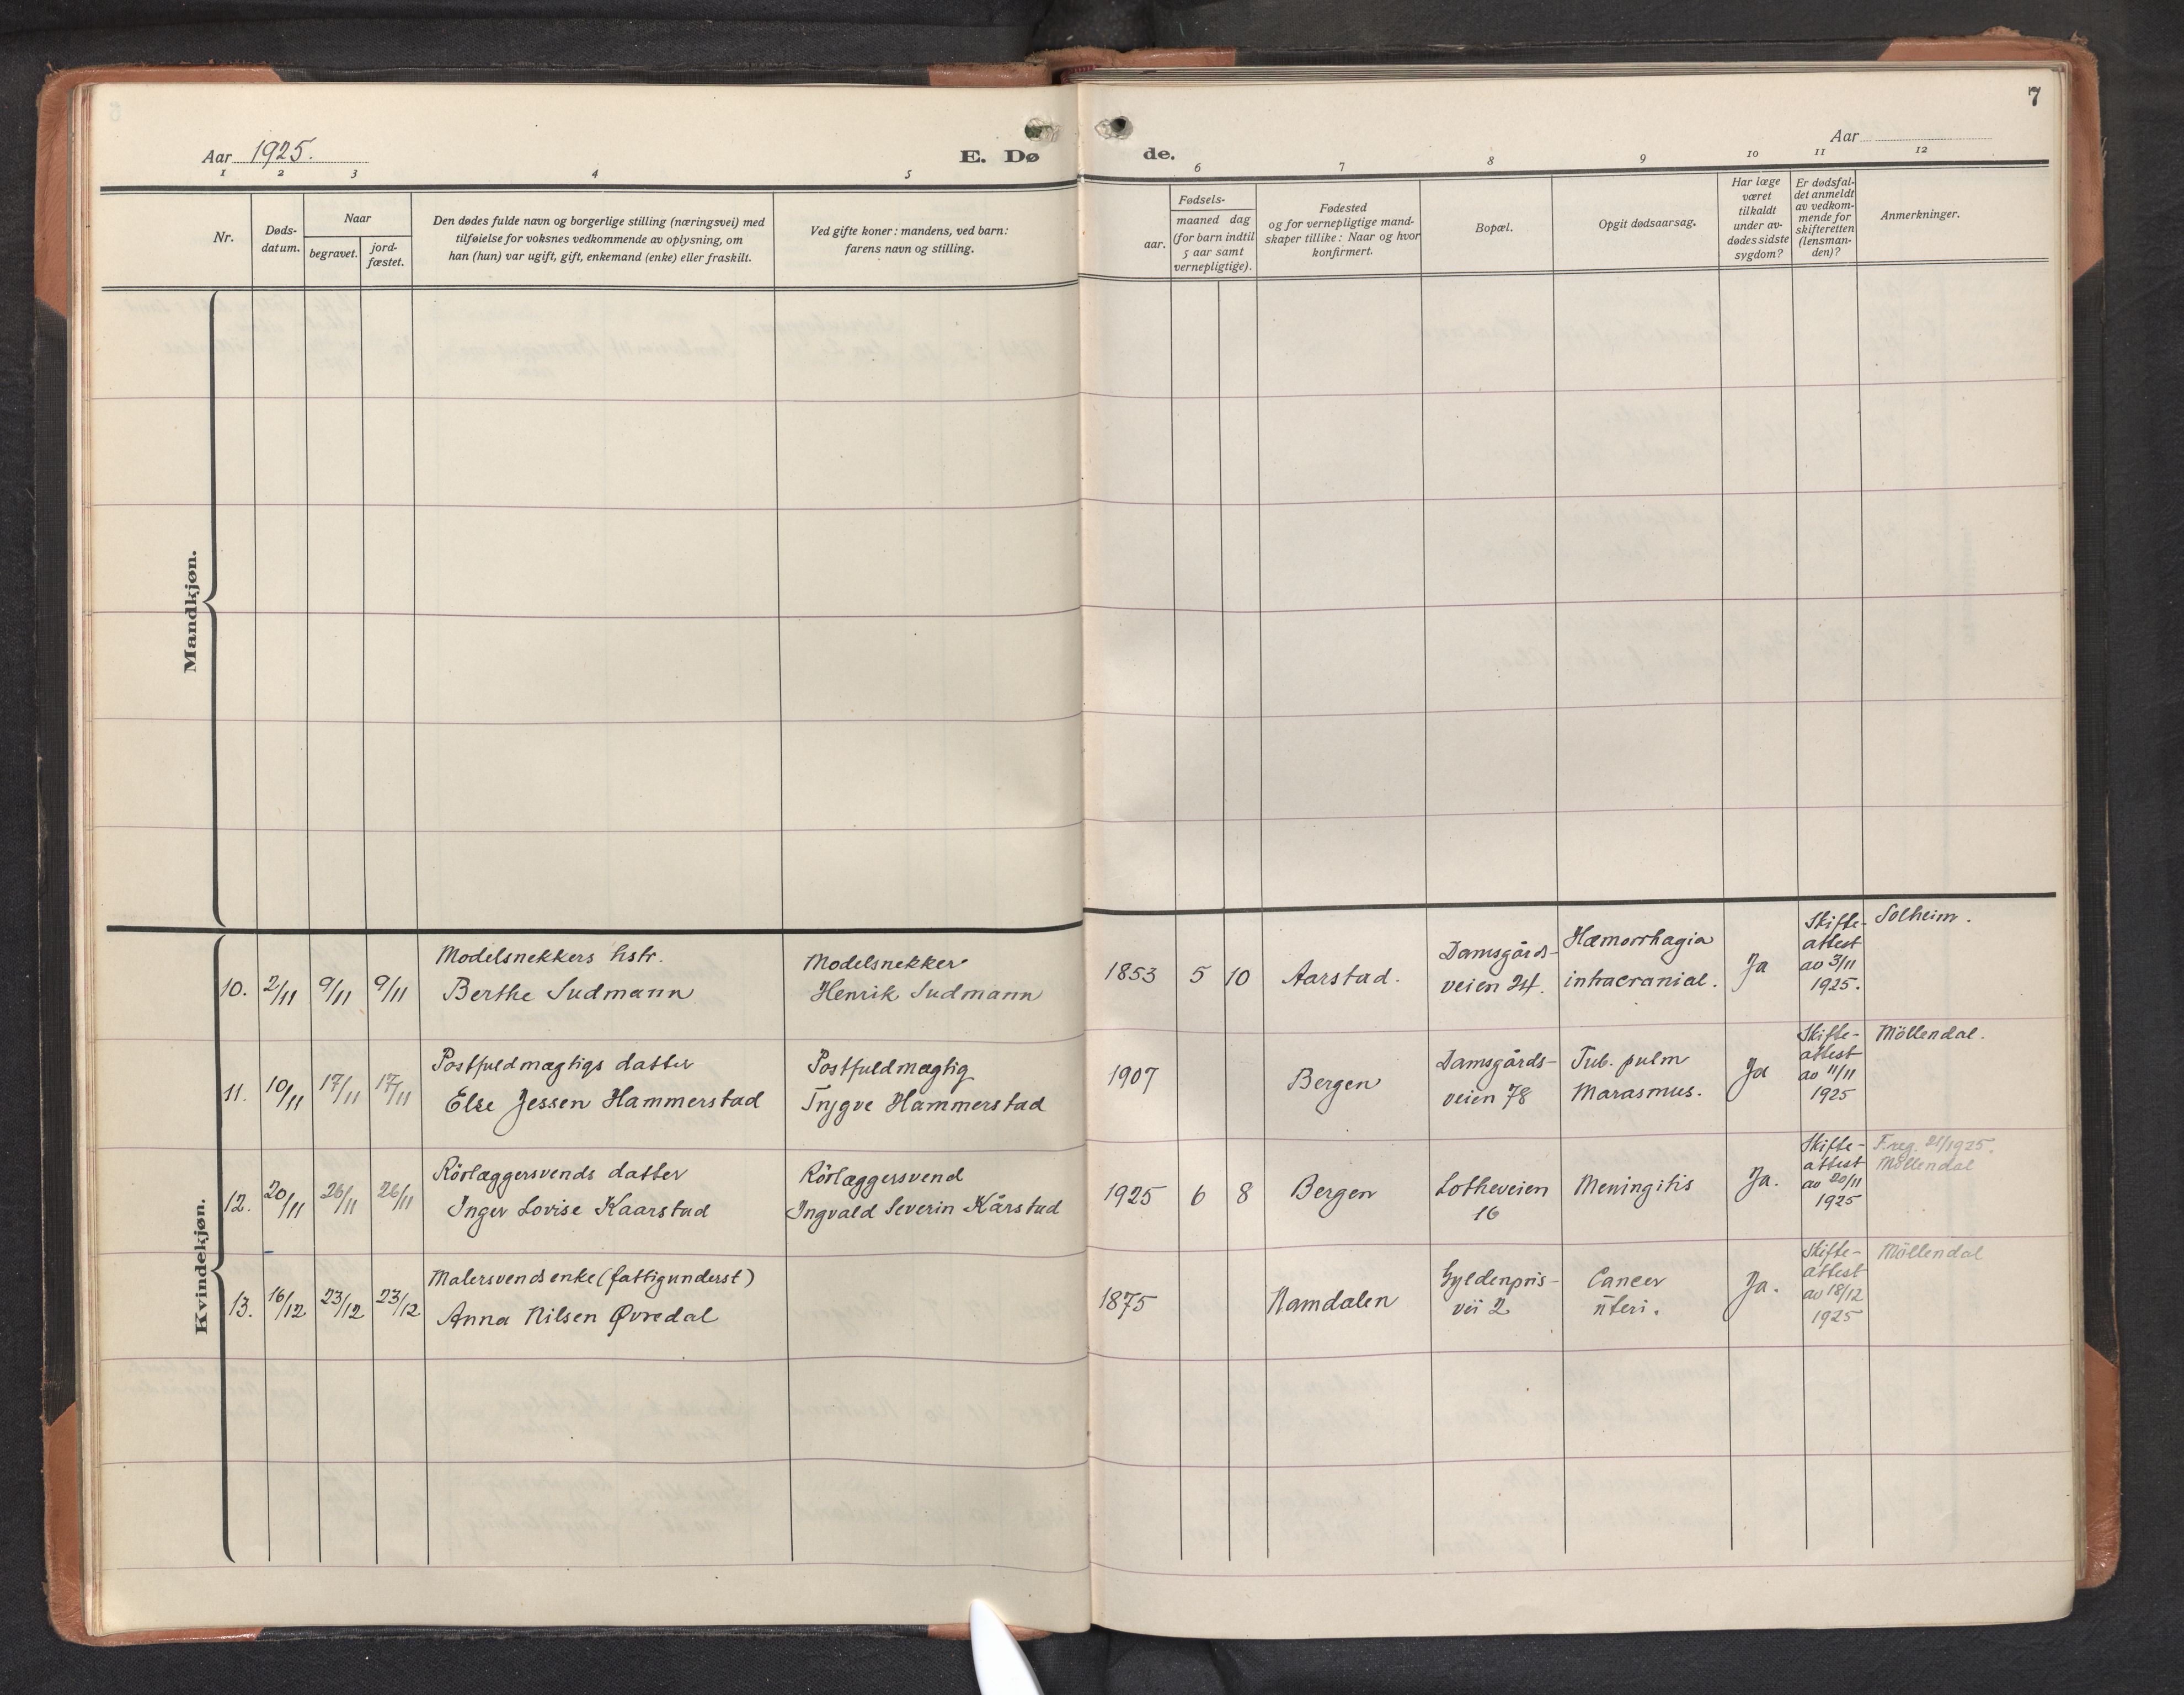 Aar 1925.
E. Dø
de.
Aar
7
1 2 3 4 5 6 7 8 9 10 11 12
Nr.
Døds-
datum.
Naar
begravet.
jord-
fæstet.
Den dødes fulde navn og borgerlige stilling (næringsvei) med
tilføielse for voksnes vedkommende av oplysning, om
han (hun) var ugift, gift, enkemand (enke) eller fraskilt.
Ved gifte koner: mandens, ved barn:
farens navn og stilling.
Fødsels-
aar.
maaned dag
(for barn indtil
5 aar samt
vernepligtige).
Fødested
og for vernepligtige mand-
skaper tillike: Naar og hvor
konfirmert.
Bopæl.
Opgit dødsaarsag.
Har læge
været
tilkaldt
under av-
dødes sidste
sygdom?
Er dødsfal-
det anmeldt
av vedkom-
mende for
skifteretten
(lensman-
den)?
Anmerkninger.
Mandkjøn.
Kvindekjøn.
10. 2/11 9/11 9/11
Modelsnekkers hstr.
Berthe Sudmann
Modelsnekker
Henrik Sudmann
1853 5 10
Aarstad.
Damsgårds-
veien 24.
Hæmorrhagia
intracranial.
Ja
Skifte-
attest
av 3/11
1925.
Solheim.
11. 10/11 17/11 17/11
Postfuldmægtigs datter
Else Jessen Hammerstad
Postfuldmægtig
Trygve Hammerstad
1907
Bergen
Damsgårds-
veien 78
Tub. pulm
Marasmus.
Ja
Skifte-
attest
av 11/11
1925
Möllendal.
12. 20/11 26/11 26/11
Rörlæggersvends datter
Inger Lovise Kaarstad
Rörlæggersvend
Ingvald Severin Kårstad
1925 6 8
Bergen
Lotheveien
16
Meningitis
Ja.
Skifte-
attest
av 20/11
1925
F.reg. 21/1925.
Möllendal
13. 16/12 23/12 23/12
Malersvends enke (fattigunderst)
Anna Nilsen Øvredal
1875
Namdalen
Gyldenpris-
vei 2
Cancer
uteri.
Ja.
Skifte-
attest
av 18/12
1925
Möllendal